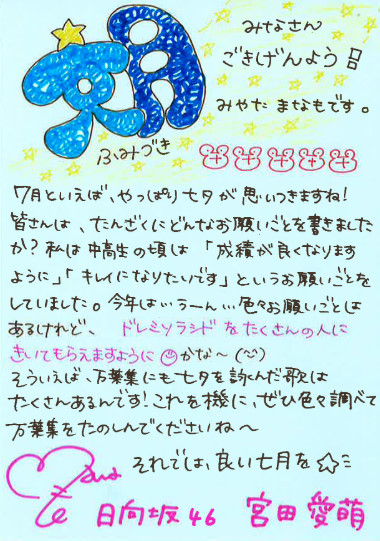 文月
ふみづき
みなさん
ごきげんよう!
みやだ まなもです。
7月といえば、やっぱり七夕が思いつきますね!
皆さんは、たんざくにどんなお願いごとを書きました
か?私は中高生の頃は「成績が良くなります
ように」「キレイになりたいです」というお願いごとを
していました。今年は…うーん…色々お願いごとは
あるけれど、ドレミソラシドをたくさんの人に
きいてもらえますようにかな〜
そういえば、万葉集にも七夕を詠んだ歌は
たくさんあるんです!これを機に、ぜひ色々調べて
万葉集をたのしんでくださいね〜
それでは、良い七月を☆
日向坂46 宮田愛萌